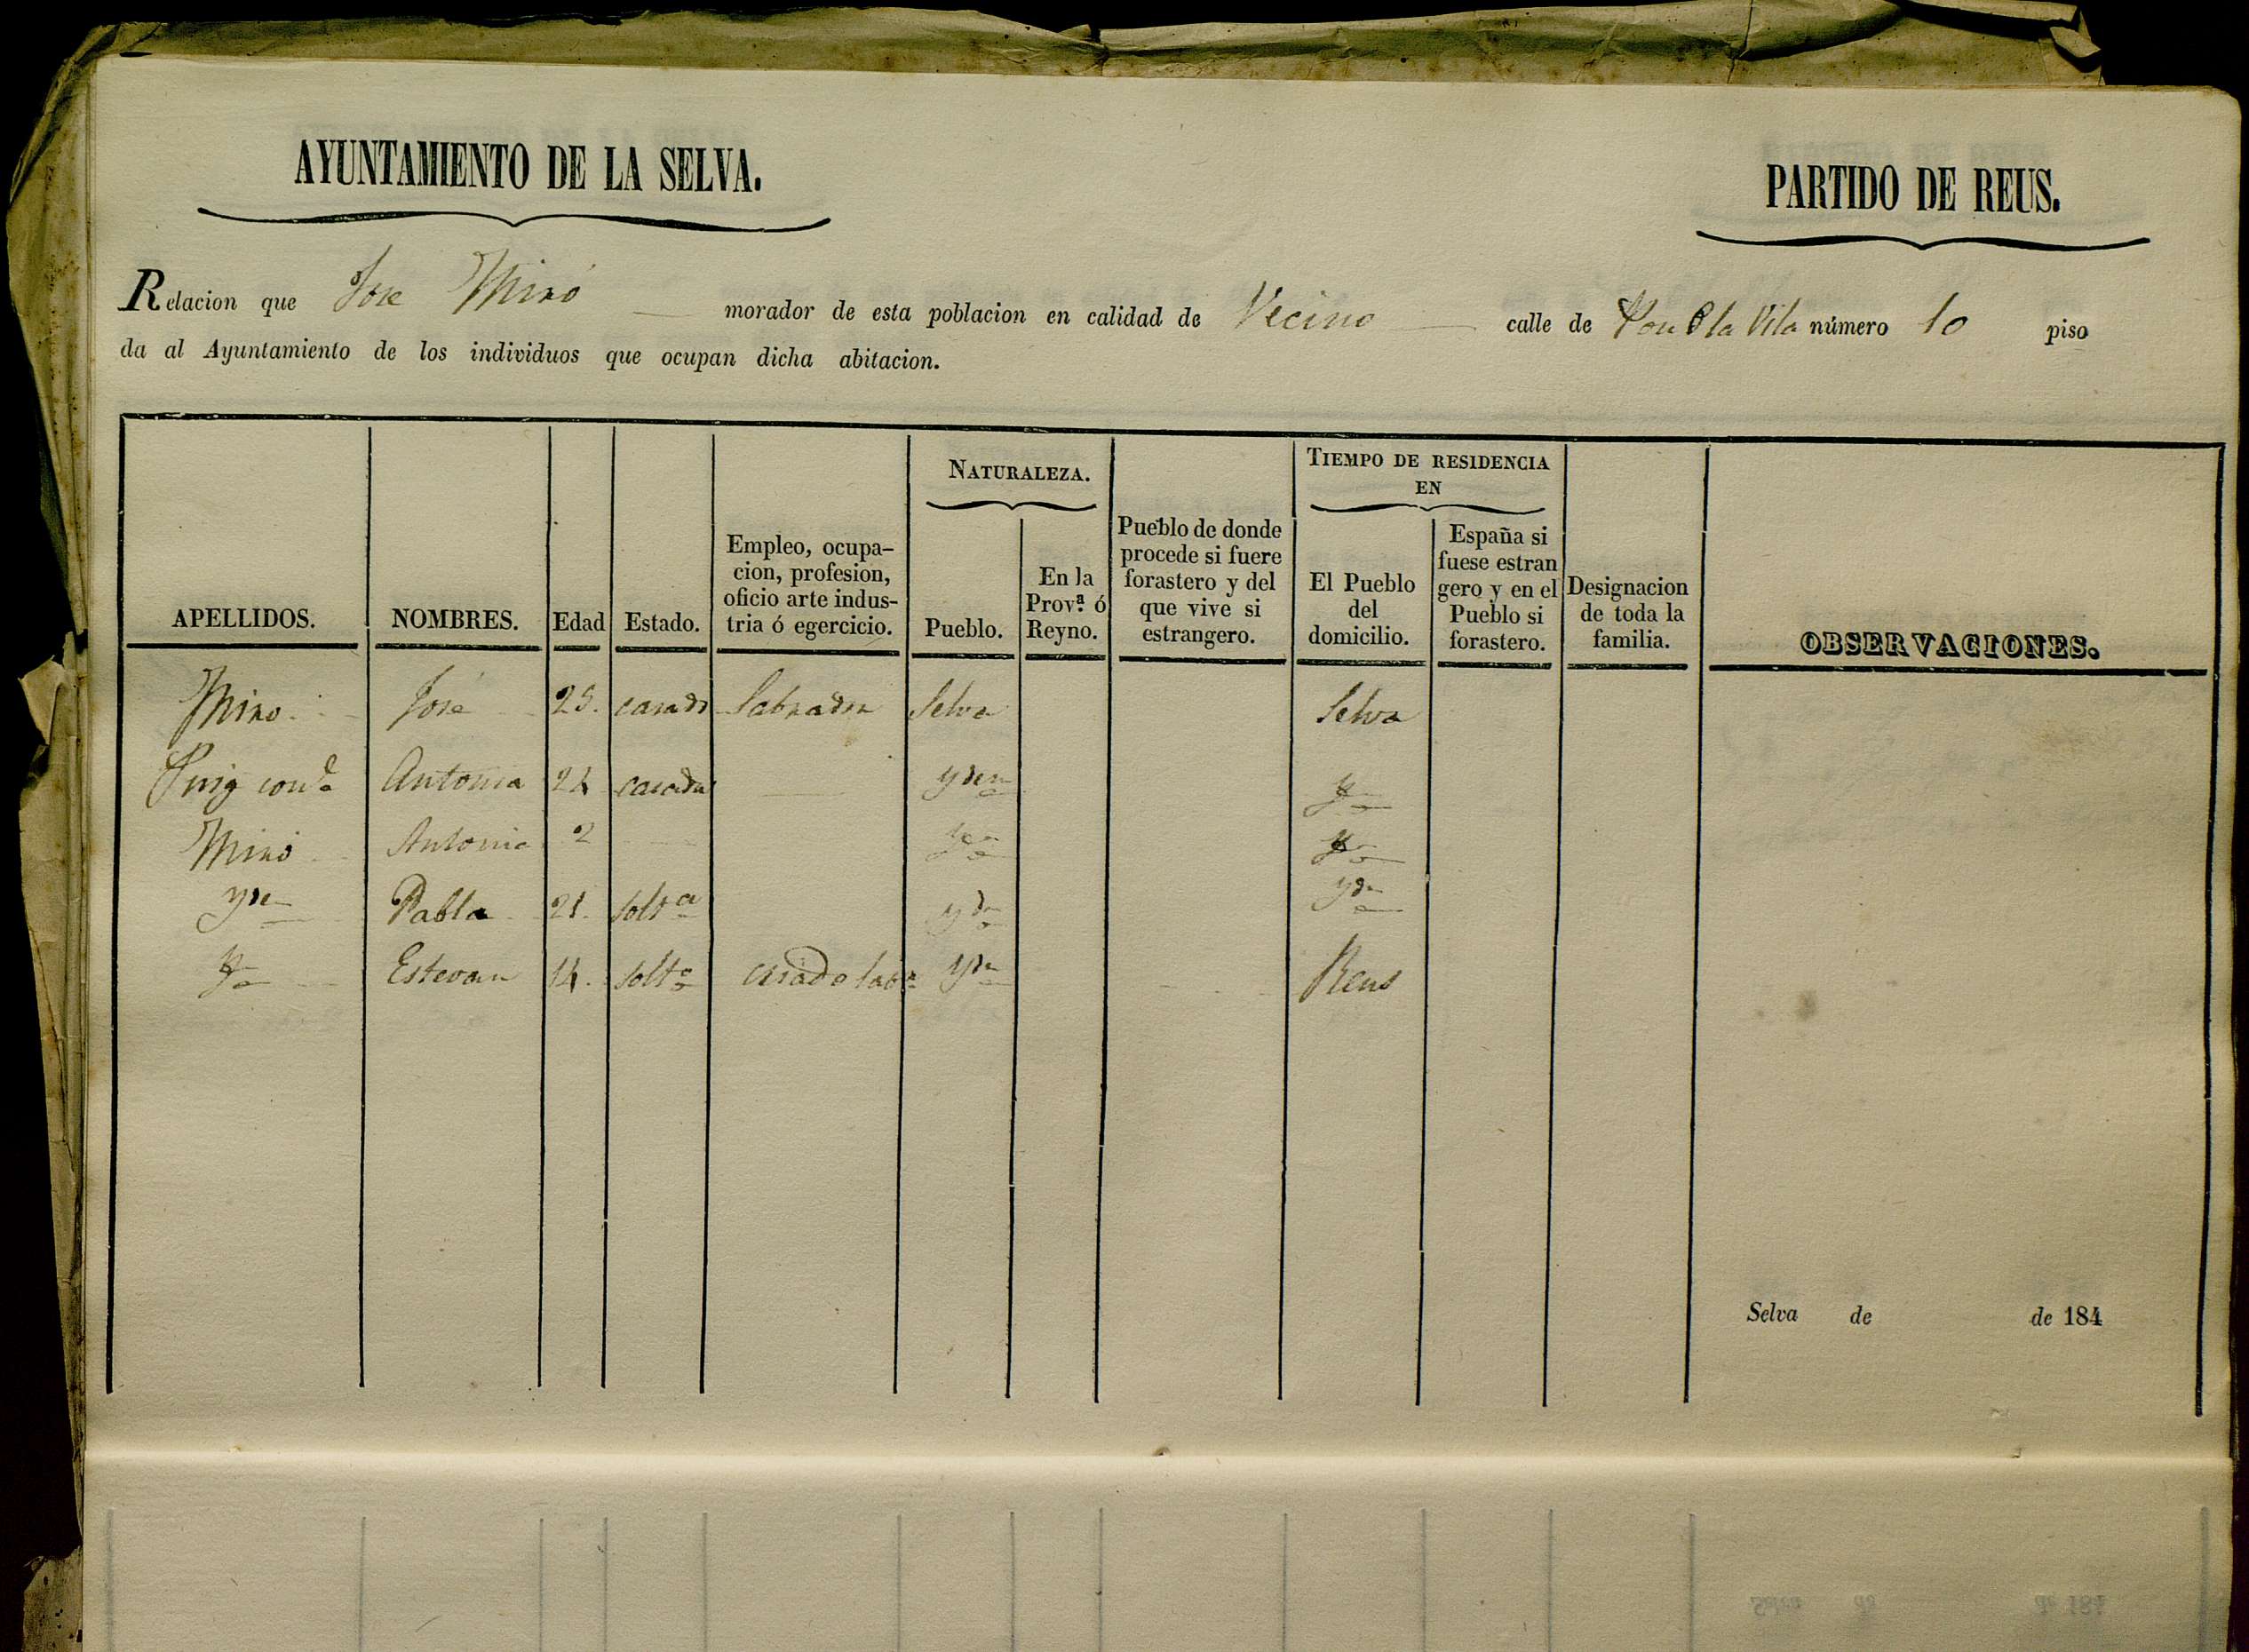 AYUNTAMIENTO DE LA SELVA.
PARTIDO DE REUS.
Relacion que Jose Miró morador de esta poblacion en calidad de Vecino calle de la Vila número 10 piso
da al Ayuntamiento de los individuos que ocupan dicha abitacion.
NATURALEZA.
TIEMPO DE RESIDENCIA EN
APELLIDOS. NOMBRES. Edad Estado. Empleo, ocupa-cion, profesion, oficio arte indus-tria ó egercicio. Pueblo. En la Prov.ª ó Reyno. Pueblo de donde procede si fuere forastero y del que vive si estrangero. El Pueblo del domicilio. España si fuese estran gero y en el Pueblo si forastero. Designacion de toda la familia. OBSERVACIONES.
Miro José 25. casado Labrador Selva Selva
Puig Antonia 24 casada yden yn
Miró Antonia 2 yn yn
yden Pabla 21. solt.a ydn ydn
yn Estevan 14. solt.o criado lab.r ydn Reus
Selva de de 184